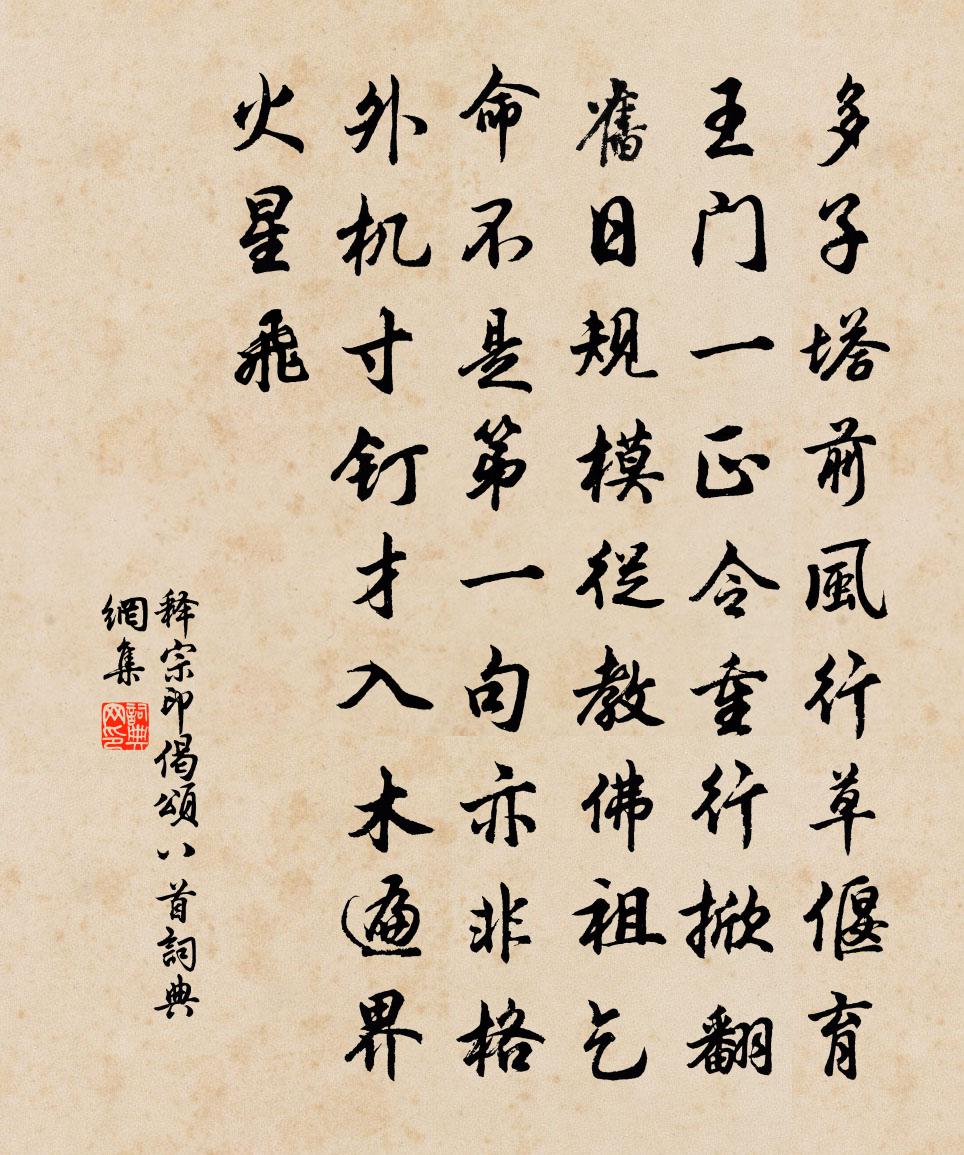 多子塔前風行草偃育
王门一正令重行掀翻
舊日規模從教佛祖乞
命不是第一句亦非格
外机寸釘才入木遍界
火星飛
释宗印偈頌八首詞典
網集
詞典
网印